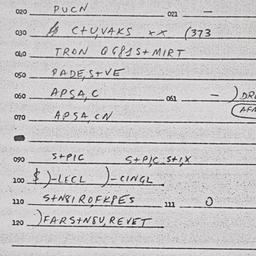 020 PUCN 021 —
030 C+U,VAKS xx (373
040 TRON QGP1S+MIRT
050 PADE,S+VE
060 APSA,C 061 — ) DR
070 APSA CN (AFA
090 S+PIC S+P,C S+,X
100 $)-LECL )-CINGL
110 S+NSIROFKPES 111 0
120 )FARS+NSU,REVET